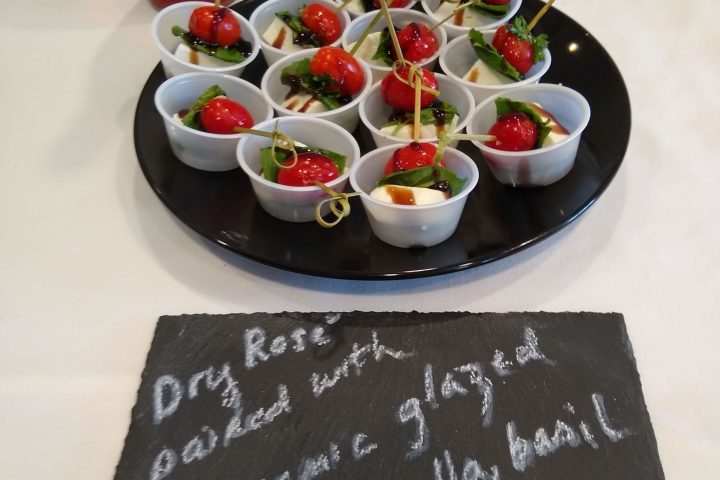 Dry Rosé
paired with
glazed
basil